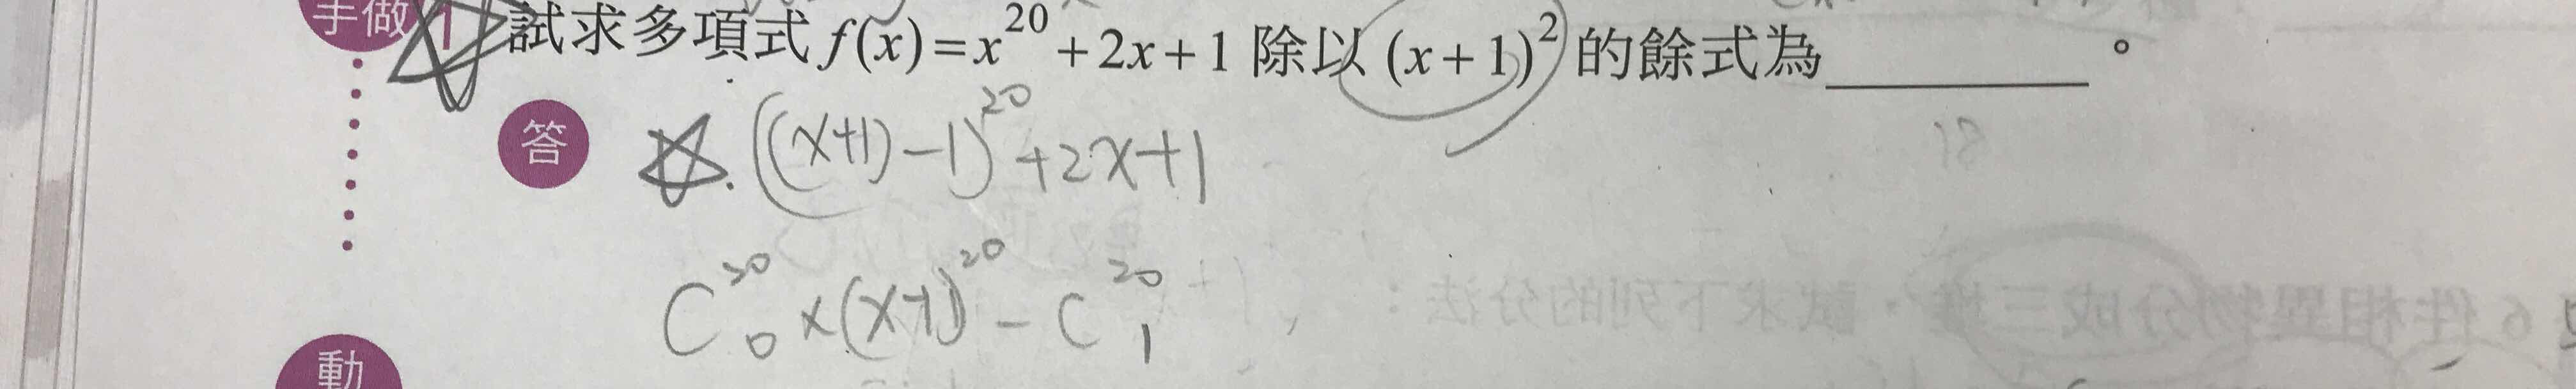 手做1 試求多項式 f(x)=x²⁰+2x+1 除以 (x+1)² 的餘式為________。
18
答 ☆. ((x+1)-1)²⁰+2x+1
C²⁰₀×(x+1)²⁰-C²⁰₁
動